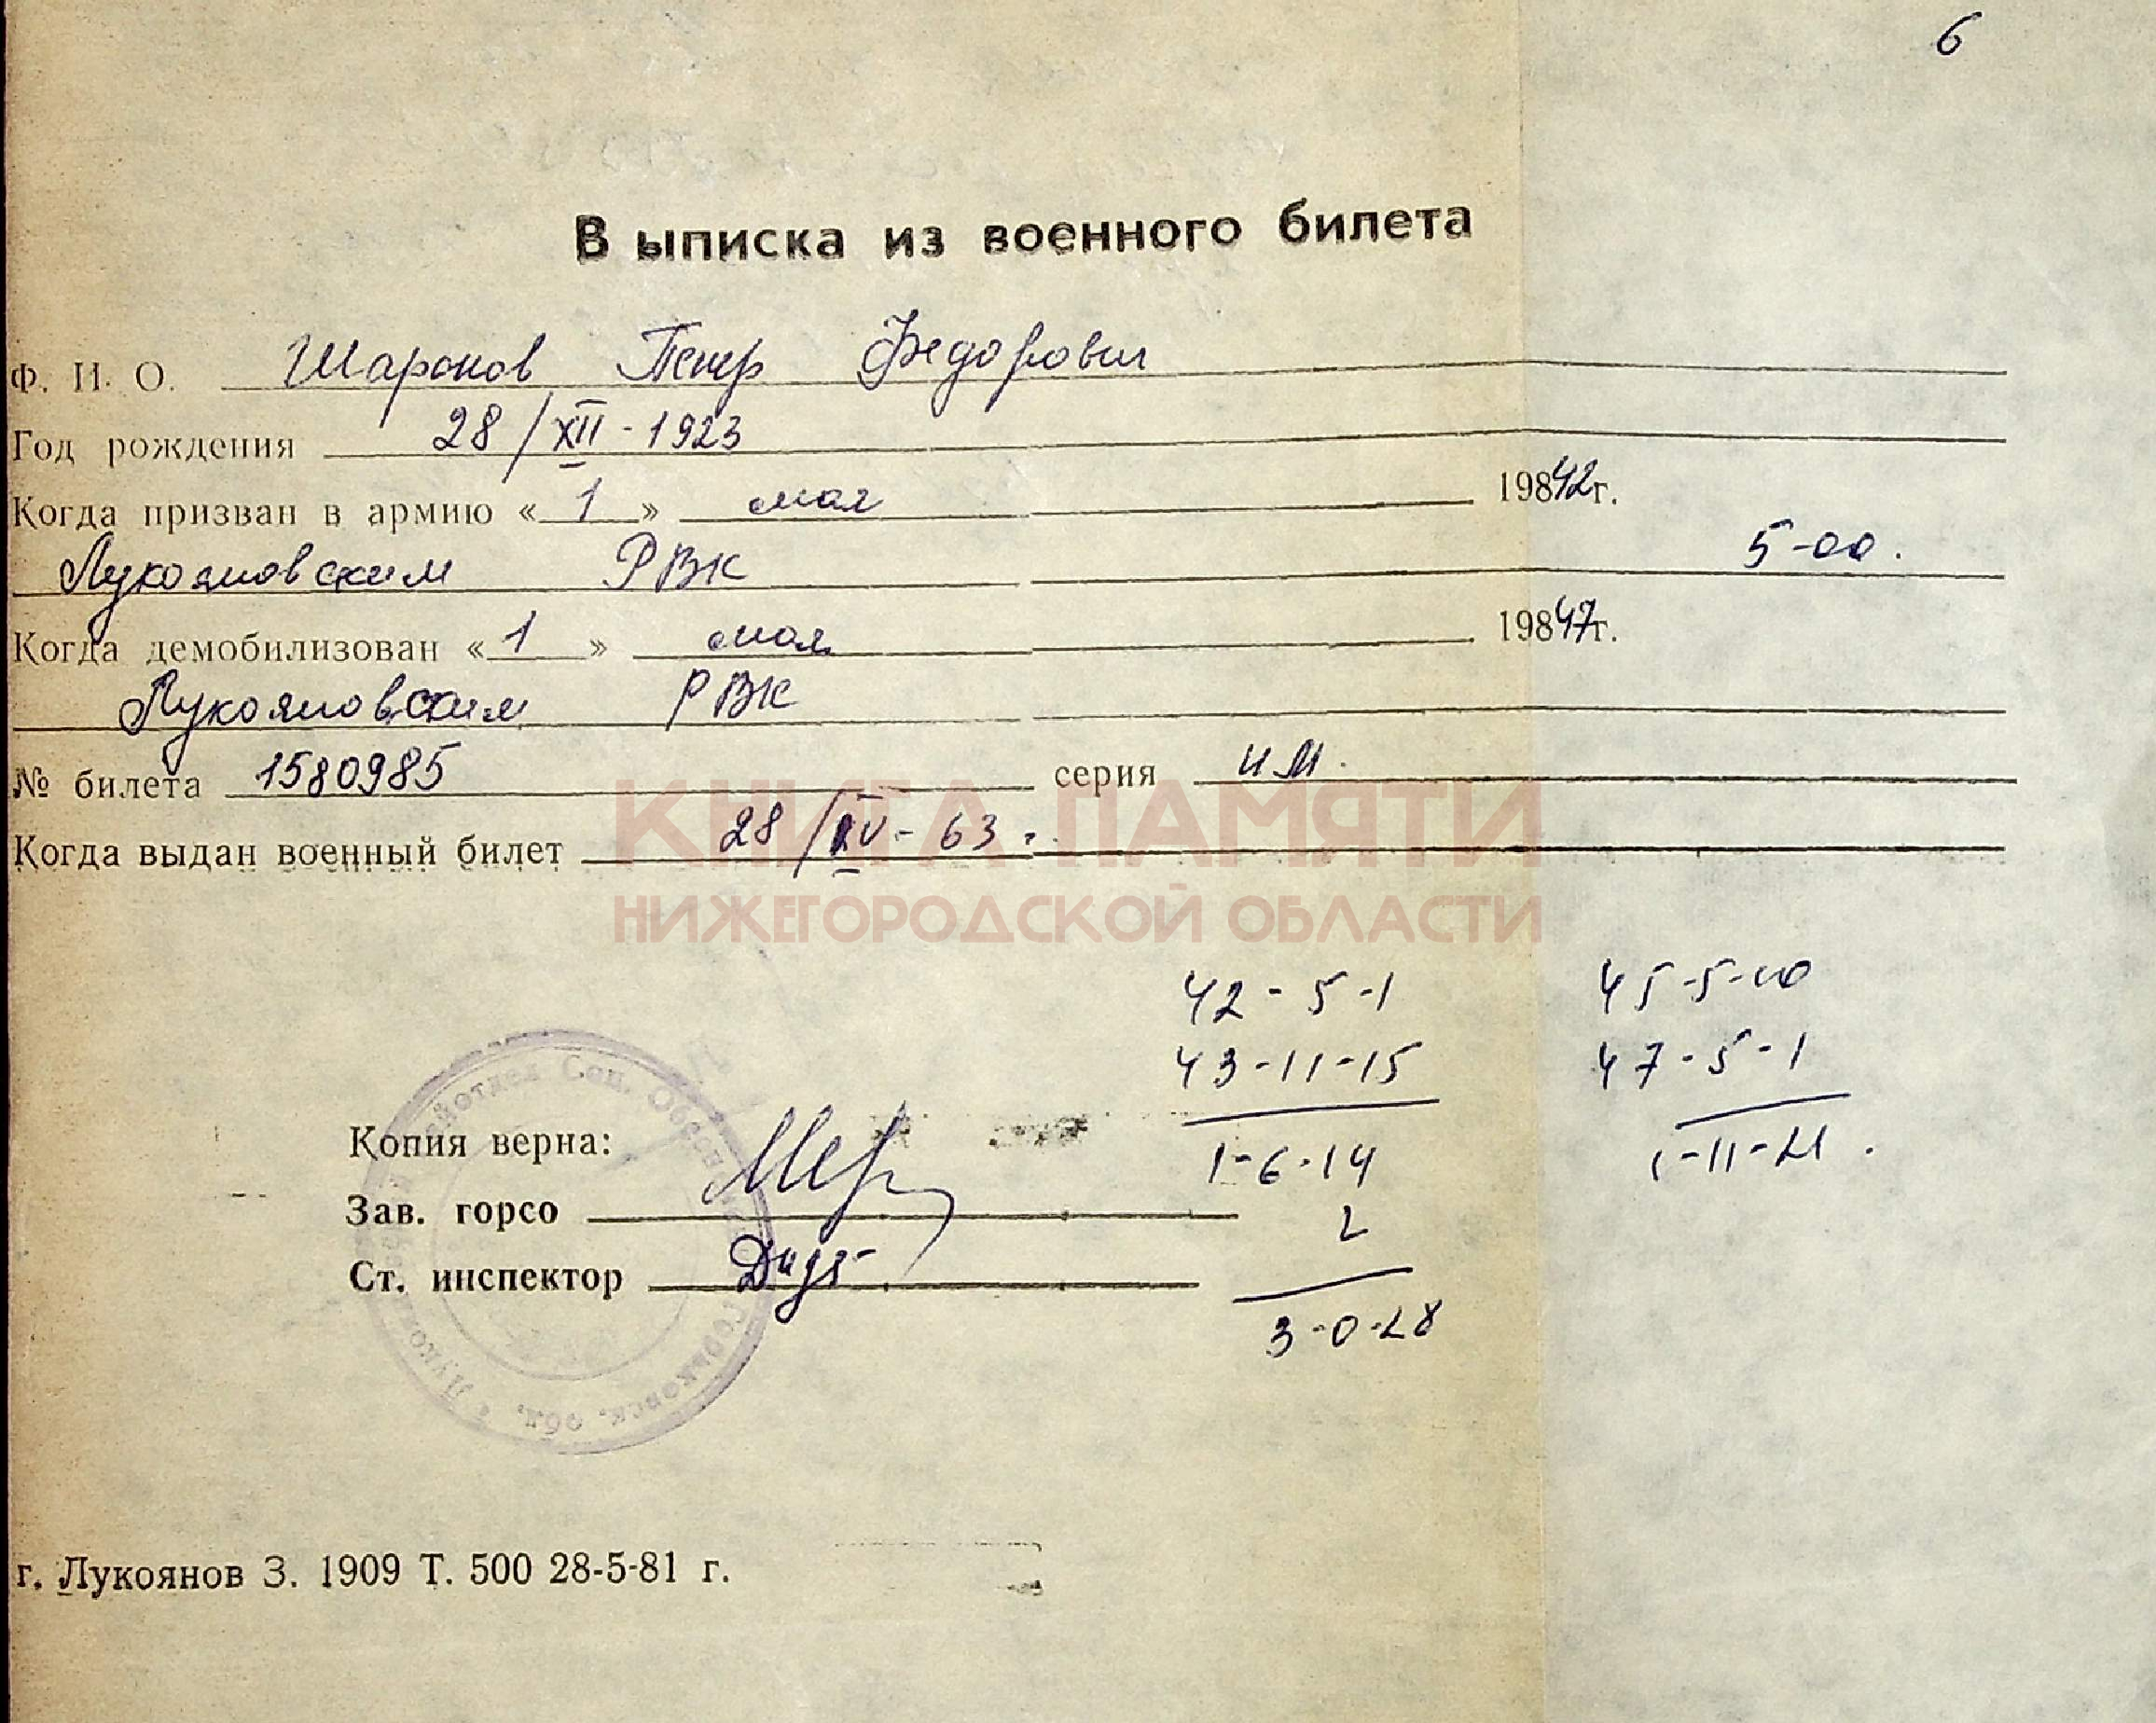 6
Выписка из военного билета
Ф. И. О. Шаронов Петр Федорович
Год рождения 28/XII-1923
Когда призван в армию «1» мая 19842г.
Лукояновским РВК 5-00.
Когда демобилизован «1» мая 19847г.
Лукояновским РВК
№ билета 1580985 серия ИМ.
Когда выдан военный билет 28/IV-63г.
КНИГА ПАМЯТИ
НИЖЕГОРОДСКОЙ ОБЛАСТИ
42-5-1 45-5-10
43-11-15 47-5-1
1-6-14 1-11-21.
2
3-0-28
Копия верна:
Зав. горсо
Ст. инспектор
Соц. Обеспеч
Горьковск. обл. * Лукоя
г. Лукоянов З. 1909 Т. 500 28-5-81 г.